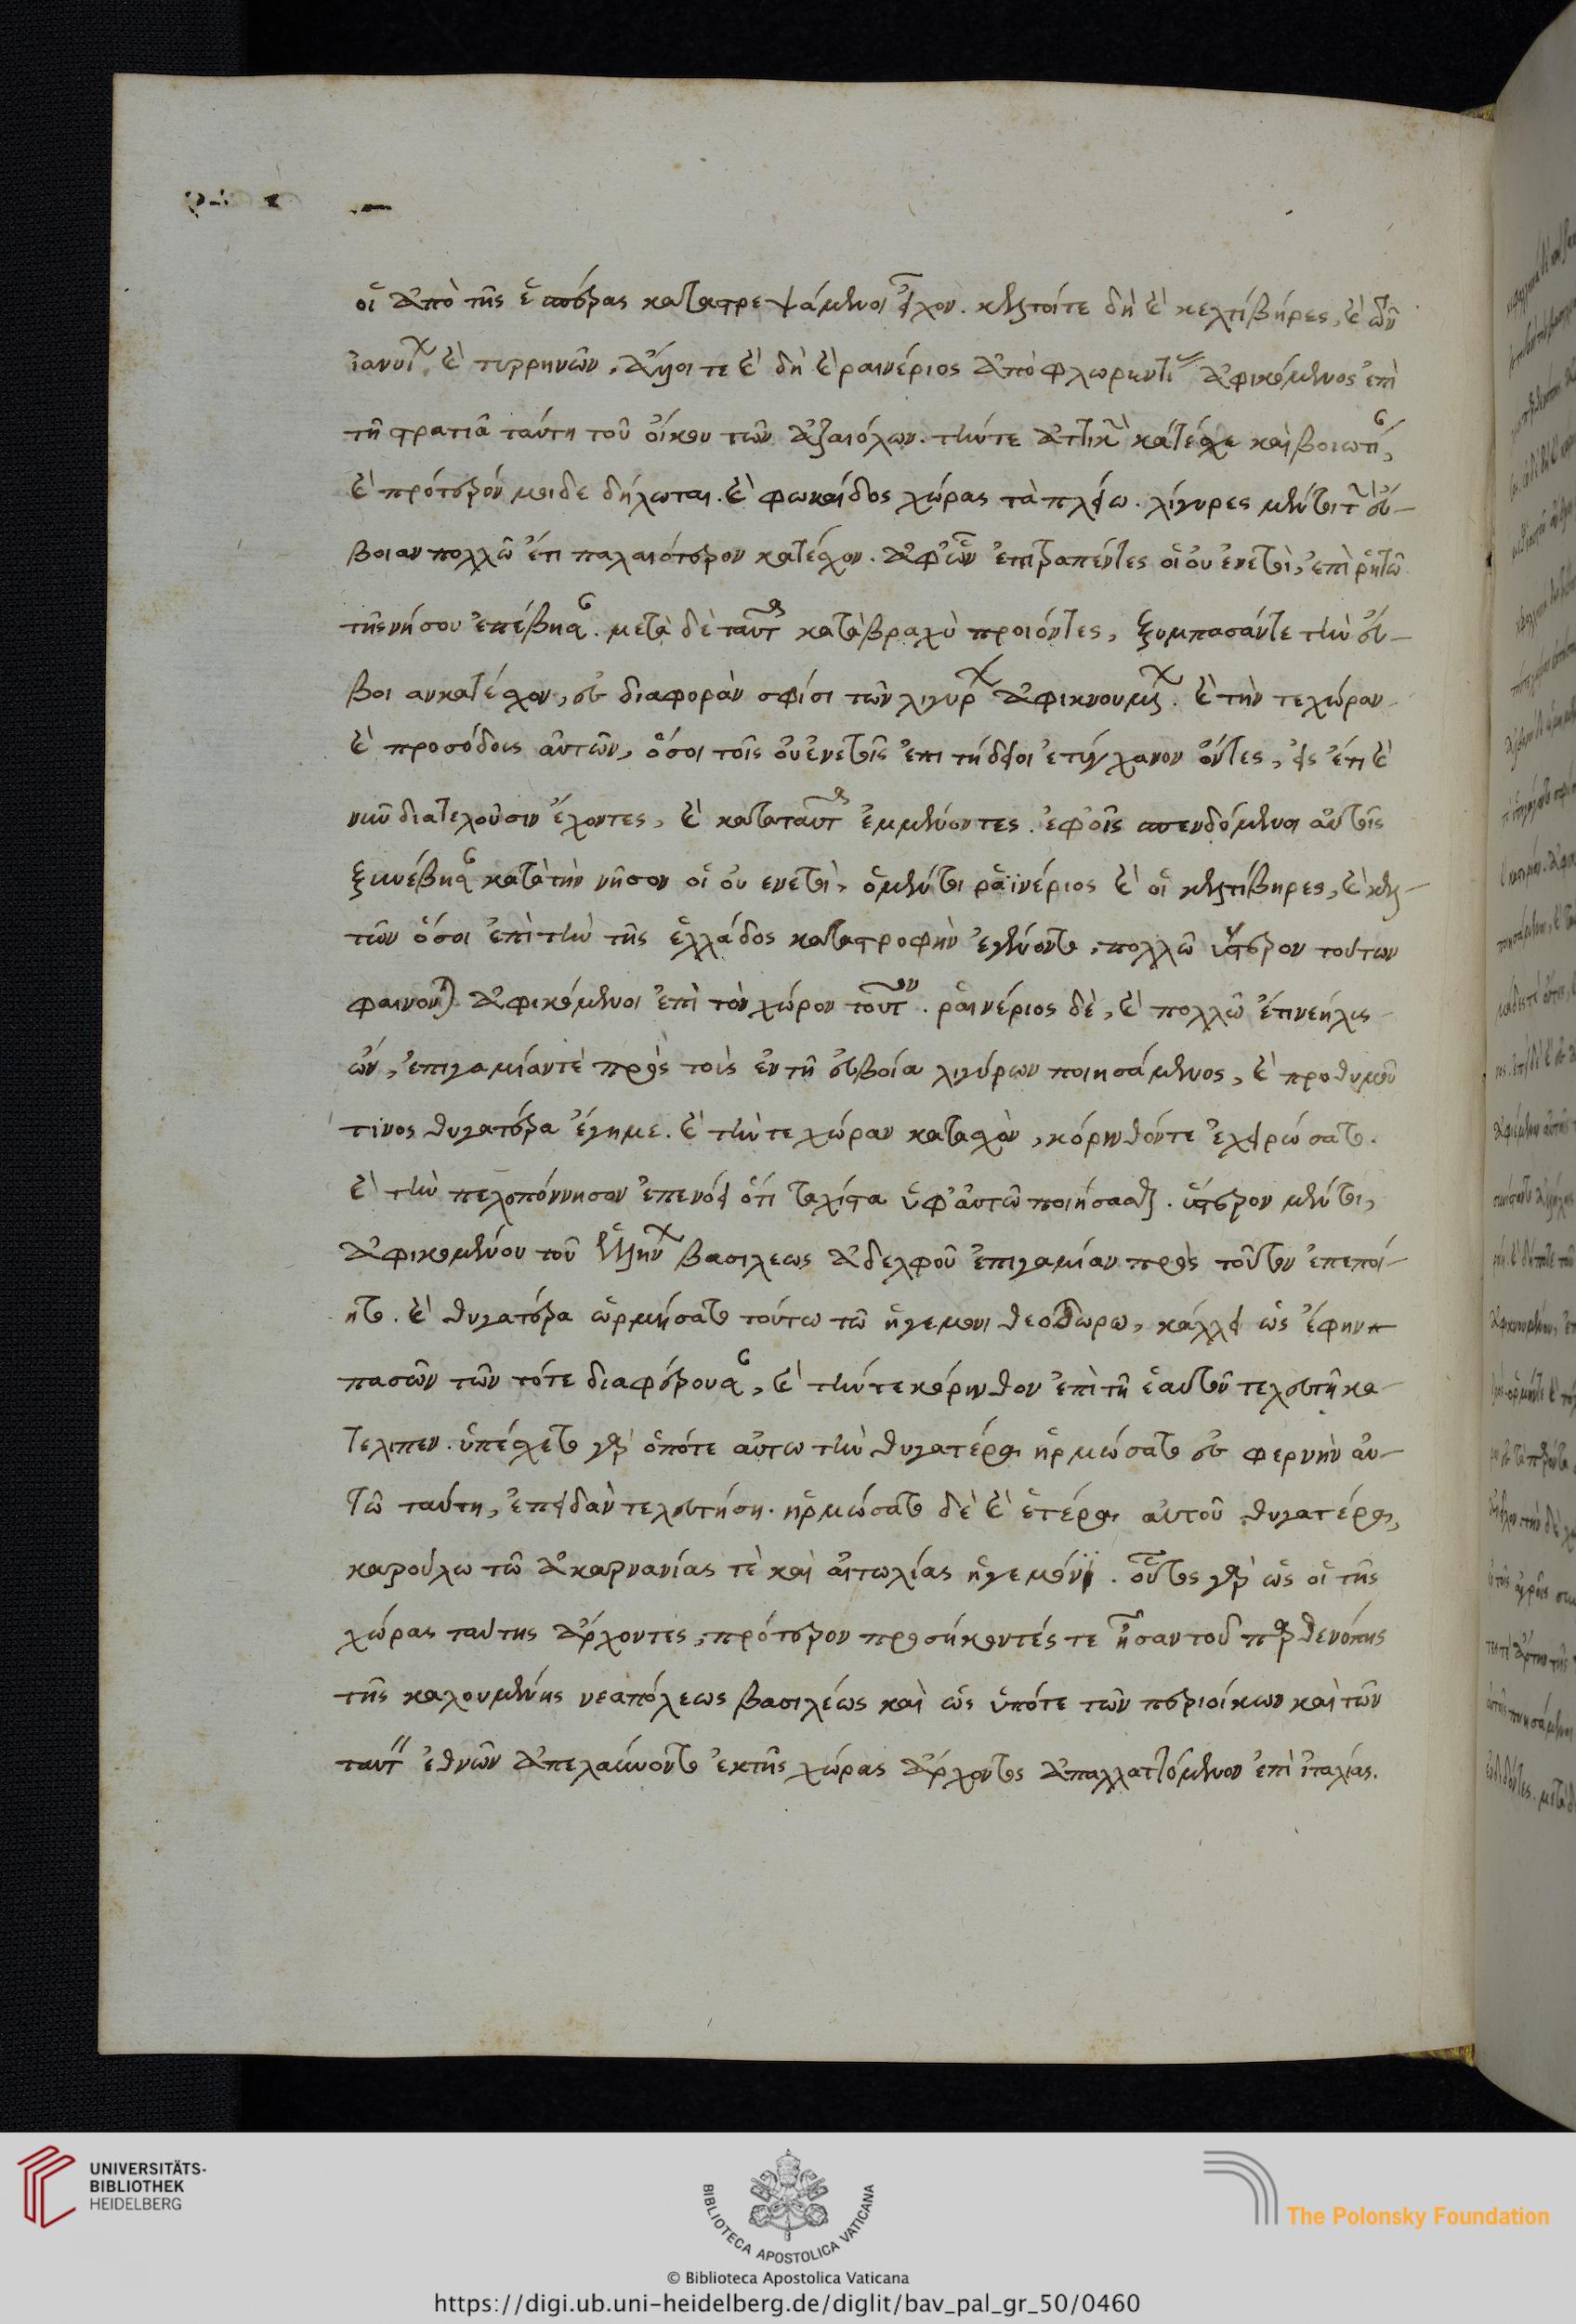 οἱ ἀπὸ τῆς ἑσπέρας καταστρεψάμενοι εἶχον. κελτοί τε δὴ καὶ κελτίβηρες, καὶ ὧν
ἰανυΐων καὶ τυρρηνῶν, ἄλλοι τε καὶ δὴ καὶ ραινέριος ἀπὸ φλωρεντίας ἀφικόμενος ἐπὶ
τῇ στρατιᾷ ταύτῃ τοῦ οἴκου τῶν ἀζαιόλων. τήν τε ἀττικὴν κατέσχε καὶ βοιωτίας,
καὶ πρότερόν μοι δε δήλωται. καὶ φωκαίδος χώρας τὰ πλείω. λίγυρες μέντοι τὴν εὔ-
βοιαν πολλῷ ἔτι παλαιότερον κατέσχον. ἀφ' ὧν ἐπιτραπέντες οἱ οὐενετοὶ, ἐπὶ ῥητῷ
τῆς νήσου ἐπέβησαν. μετὰ δὲ ταῦτα κατὰ βραχὺ προιόντες, ξυμπασάν τε τὴν εὔ-
βοι αν κατέσχον, ἐς διαφορὰν σφίσι τῶν λιγυρων ἀφικνουμένων. καὶ τὴν τε χώραν
καὶ προσόδοις αὐτῶν, ὅσοι τοῖς οὐενετοῖς ἐπι τήδειοι ἐτύγχανον ὄντες, εἰς ἔτι καὶ
νῦν διατελοῦσιν ἔχοντες, καὶ κατα ταῦτα ἐμμένοντες. ἐφ' οἷς σπενδόμενοι αὐτοῖς
ξυνέβησαν κατὰ τὴν νῆσον οἱ ου ενετοὶ. ὁ μέντοι ραϊνέριος καὶ οἱ κελτίβηρες, καὶ κελ-
τῶν ὅσοι ἐπὶ τὴν τῆς ἑλλάδος καταστροφὴν ἐγένοντο, πολλῷ ὕστερον τούτων
φαινονται ἀφικόμενοι ἐπὶ τὸν χῶρον τοῦτον. ραινέριος δὲ, καὶ πολλῷ ἔτι νεήλυς
ὤν, ἐπιγαμίαν τὲ πρὸς τοὺς ἐν τῇ εὐβοία λιγύρων ποιησάμενος, καὶ προθυμου
τινος θυγατέρα ἔγημε. καὶ τήν τε χώραν κατασχὼν, κόρινθόν τε ἐχειρώσατο.
καὶ τὴν πελοπόννησον ἐπενόει ὅτι ταχίστα ὑφ' αὑτῷ ποιήσασθαι. ὕστερον μέντοι,
ἀφικομένου τοῦ Ἑλλήνων βασιλεως ἀδελφοῦ ἐπιγαμίαν πρὸς τοῦτον ἐπεποί-
ητο. καὶ θυγατέρα ὡρμήσατο τούτω τῷ ἡγεμονι θεοδωρω, κάλλει ὡς ἔφην
πασῶν τῶν τότε διαφέρουσαν, καὶ τήν τε κόρινθον ἐπὶ τῇ ἑαυτοῦ τελευτῇ κα-
τελιπεν. ὑπέσχετο γὰρ ὁπότε αὐτω τὴν θυγατέρα ἡρμώσατο ἐς φερνὴν αὐ-
τῷ ταύτη, ἐπειδὰν τελευτήση. ἡρμώσατο δὲ καὶ ἑτέρα αὐτοῦ θυγατέρα,
καρούλω τῷ ἀκαρνανίας τὲ καὶ αἰτωλίας ἡγεμόνι. οὗτος γὰρ ὡς οἱ τῆς
χώρας ταύτης ἄρχοντες, πρότερον προσήκοντές τε ἦσαν τοῦ παρθενόπης
τῆς καλουμένης νεαπόλεως βασιλέως καὶ ὡς ὑπότε τῶν περιοίκων καὶ τῶν
ταύτῃ ἐθνῶν ἀπελαύνοντο ἐκ τῆς χώρας ἄρχοντος ἀπαλλαττόμενον ἐπὶ ἰταλίας.
UNIVERSITÄTS-
BIBLIOTHEK
HEIDELBERG
BIBLIOTECA APOSTOLICA VATICANA
The Polonsky Foundation
© Biblioteca Apostolica Vaticana
https://digi.ub.uni-heidelberg.de/diglit/bav_pal_gr_50/0460